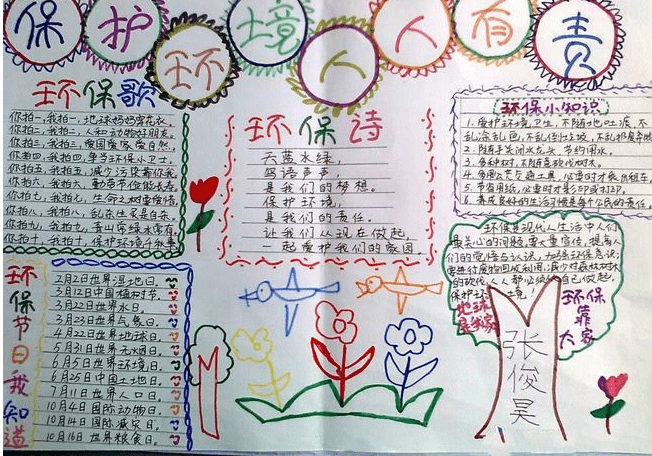 保护环境人人有责
环保歌
你拍一,我拍一,地球妈妈穿花衣。
你拍二,我拍二,人和动物好朋友。
你拍三,我拍三,爱国爱家爱自然。
你拍四,我拍四,争当环保小卫士。
你拍五,我拍五,减少污染靠你我。
你拍六,我拍六,勤俭节
你拍七,我拍七,生命之树
你拍八,我拍八,乱杀生灵是自杀。
你拍九,我拍九,青山常绿水常有
你拍十,我拍十,保护环境千秋事
环保诗
天蓝水绿,
鸟语声声,
是我们的梦想。
保护环境,
是我们的责任。
让我们从现在做起,
一起爱护我们的家园。
环保小知识
1.爱护环境卫生,不随地吐痰,不
乱涂乱画,不乱倒垃圾,不乱排废弃物
2.随手关闭水龙头,节约用水。
3.多种树,不随意砍伐树木。
4.多用公共交通工具,必要时才乘出租车。
5.节省用纸,必要时才影印或打印。
6.养成良好的生活习惯是每个公民的责任。
环保是现代人生活中人们
最关心的问题,要大量宣传,提高人
们的觉悟与认识,加强环保意识;
的砍伐,人人都必须从自己做起,
保护环境
地球
是我家
环保
靠
大家
张俊昊
环保节日我知道
2月2日世界湿地日。
3月12日中国植树节。
3月22日世界水日。
3月23日世界气象日。
4月22日世界地球日。
5月31日世界无烟日。
6月5日世界环境日。
6月25日中国土地日。
7月11日世界人口日。
10月4日国际动物日。
10月14日国际减灾日。
10月16日世界粮食日。